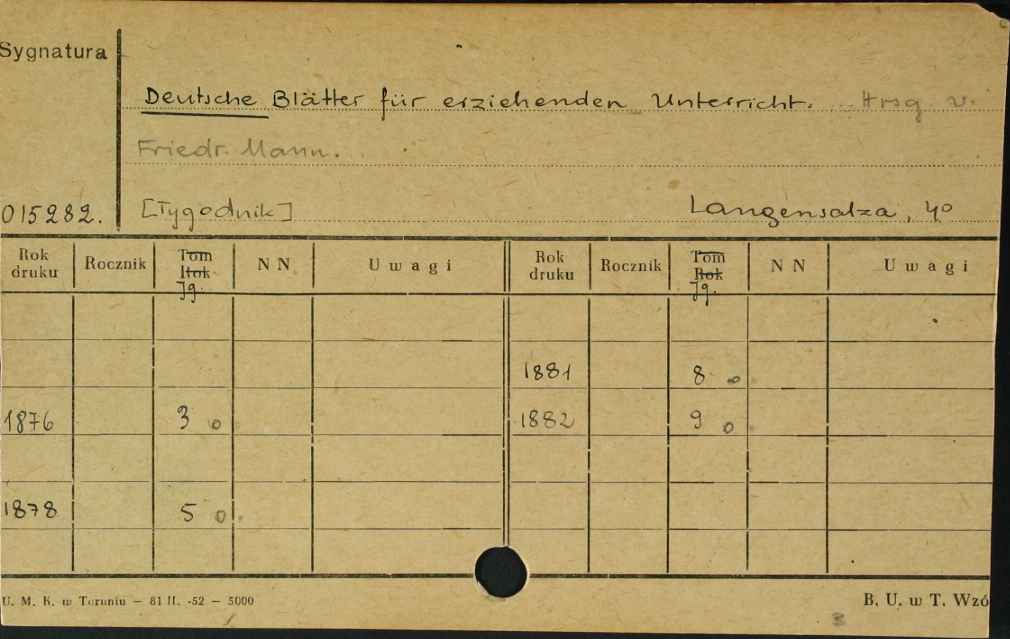 Sygnatura
Deutsche Blätter für erziehenden Unterricht. Hrsg v.
Friedr. Mann.
015282. [Tygodnik] Langensalza, 4º
Rok druku Rocznik Tom Rok Jg. N N Uwagi Rok druku Rocznik Tom Rok Jg. N N Uwagi
1881 8 o
1876 3 o 1882 9 o
1878 5 o
U. M. K. w Toruniu — 81 II. -52 — 5000 B. U. w T. Wzó